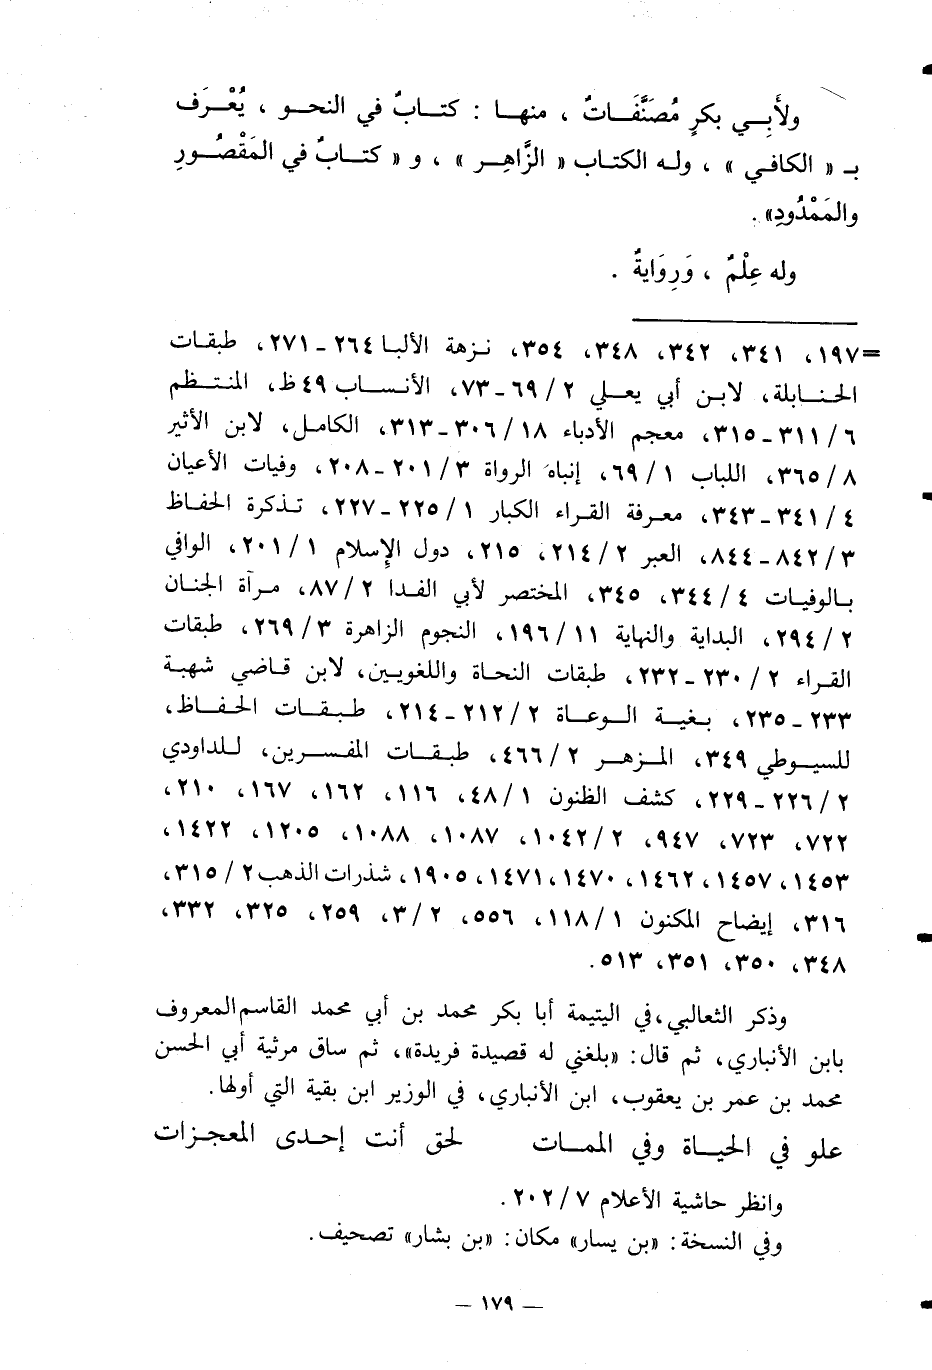 ولأَبِي بكرٍ مُصَنَّفَاتٌ ، منها : كتابٌ في النحو ، يُعْرَف
بـ « الكافي » ، وله الكتاب « الزَّاهِر » ، و « كتابٌ في المَقْصُورِ
والمَمْدُودِ» .
وله عِلْمٌ ، وَرِوَايَةٌ .
=١٩٧، ٣٤١، ٣٤٢، ٣٤٨، ٣٥٤، نزهة الألبا ٢٦٤ ـ ٢٧١، طبقات
الحنابلة، لابن أبي يعلي ٢ / ٦٩ ـ ٧٣، الأنساب ٤٩ ظ، المنتظم
٦ / ٣١١ ـ ٣١٥، معجم الأدباء ١٨ / ٣٠٦ ـ ٣١٣، الكامل، لابن الأثير
٨ / ٣٦٥، اللباب ١ / ٦٩، إنباه الرواة ٣ / ٢٠١ ـ ٢٠٨، وفيات الأعيان
٤ / ٣٤١ ـ ٣٤٣، معرفة القراء الكبار ١ / ٢٢٥ ـ ٢٢٧، تذكرة الحفاظ
٣ / ٨٤٢ ـ ٨٤٤، العبر ٢ / ٢١٤، ٢١٥، دول الإسلام ١ / ٢٠١، الوافي
بالوفيات ٤ / ٣٤٤، ٣٤٥، المختصر لأبي الفدا ٢ / ٨٧، مرآة الجنان
٢ / ٢٩٤، البداية والنهاية ١١ / ١٩٦، النجوم الزاهرة ٣ / ٢٦٩، طبقات
القراء ٢ / ٢٣٠ ـ ٢٣٢، طبقات النحاة واللغويين، لابن قاضي شهبة
٢٣٣ ـ ٢٣٥، بغية الوعاة ٢ / ٢١٢ ـ ٢١٤، طبقات الحفاظ،
للسيوطي ٣٤٩، المزهر ٢ / ٤٦٦، طبقات المفسرين، للداودي
٢ / ٢٢٦ ـ ٢٢٩، كشف الظنون ١ / ٤٨، ١١٦، ١٦٢، ١٦٧، ٢١٠،
٧٢٢، ٧٢٣، ٩٤٧، ٢ / ١٠٤٢، ١٠٨٧، ١٠٨٨، ١٢٠٥، ١٤٢٢،
١٤٥٣، ١٤٥٧، ١٤٦٢، ١٤٧٠، ١٤٧١، ١٩٠٥، شذرات الذهب ٢ / ٣١٥،
٣١٦، إيضاح المكنون ١ / ١١٨، ٥٥٦، ٢ / ٣، ٢٥٩، ٣٢٥، ٣٣٢،
٣٤٨، ٣٥٠، ٣٥١، ٥١٣.
وذكر الثعالبي، في اليتيمة أبا بكر محمد بن أبي محمد القاسم المعروف
بابن الأنباري، ثم قال: «بلغني له قصيدة فريدة»، ثم ساق مرثية أبي الحسن
محمد بن عمر بن يعقوب، ابن الأنباري، في الوزير ابن بقية التي أولها.
علو في الحياة وفي الممات لحق أنت إحدى المعجزات
وانظر حاشية الأعلام ٧ / ٢٠٢.
وفي النسخة: «بن يسار» مكان: «بن بشار» تصحيف.
— ١٧٩ —